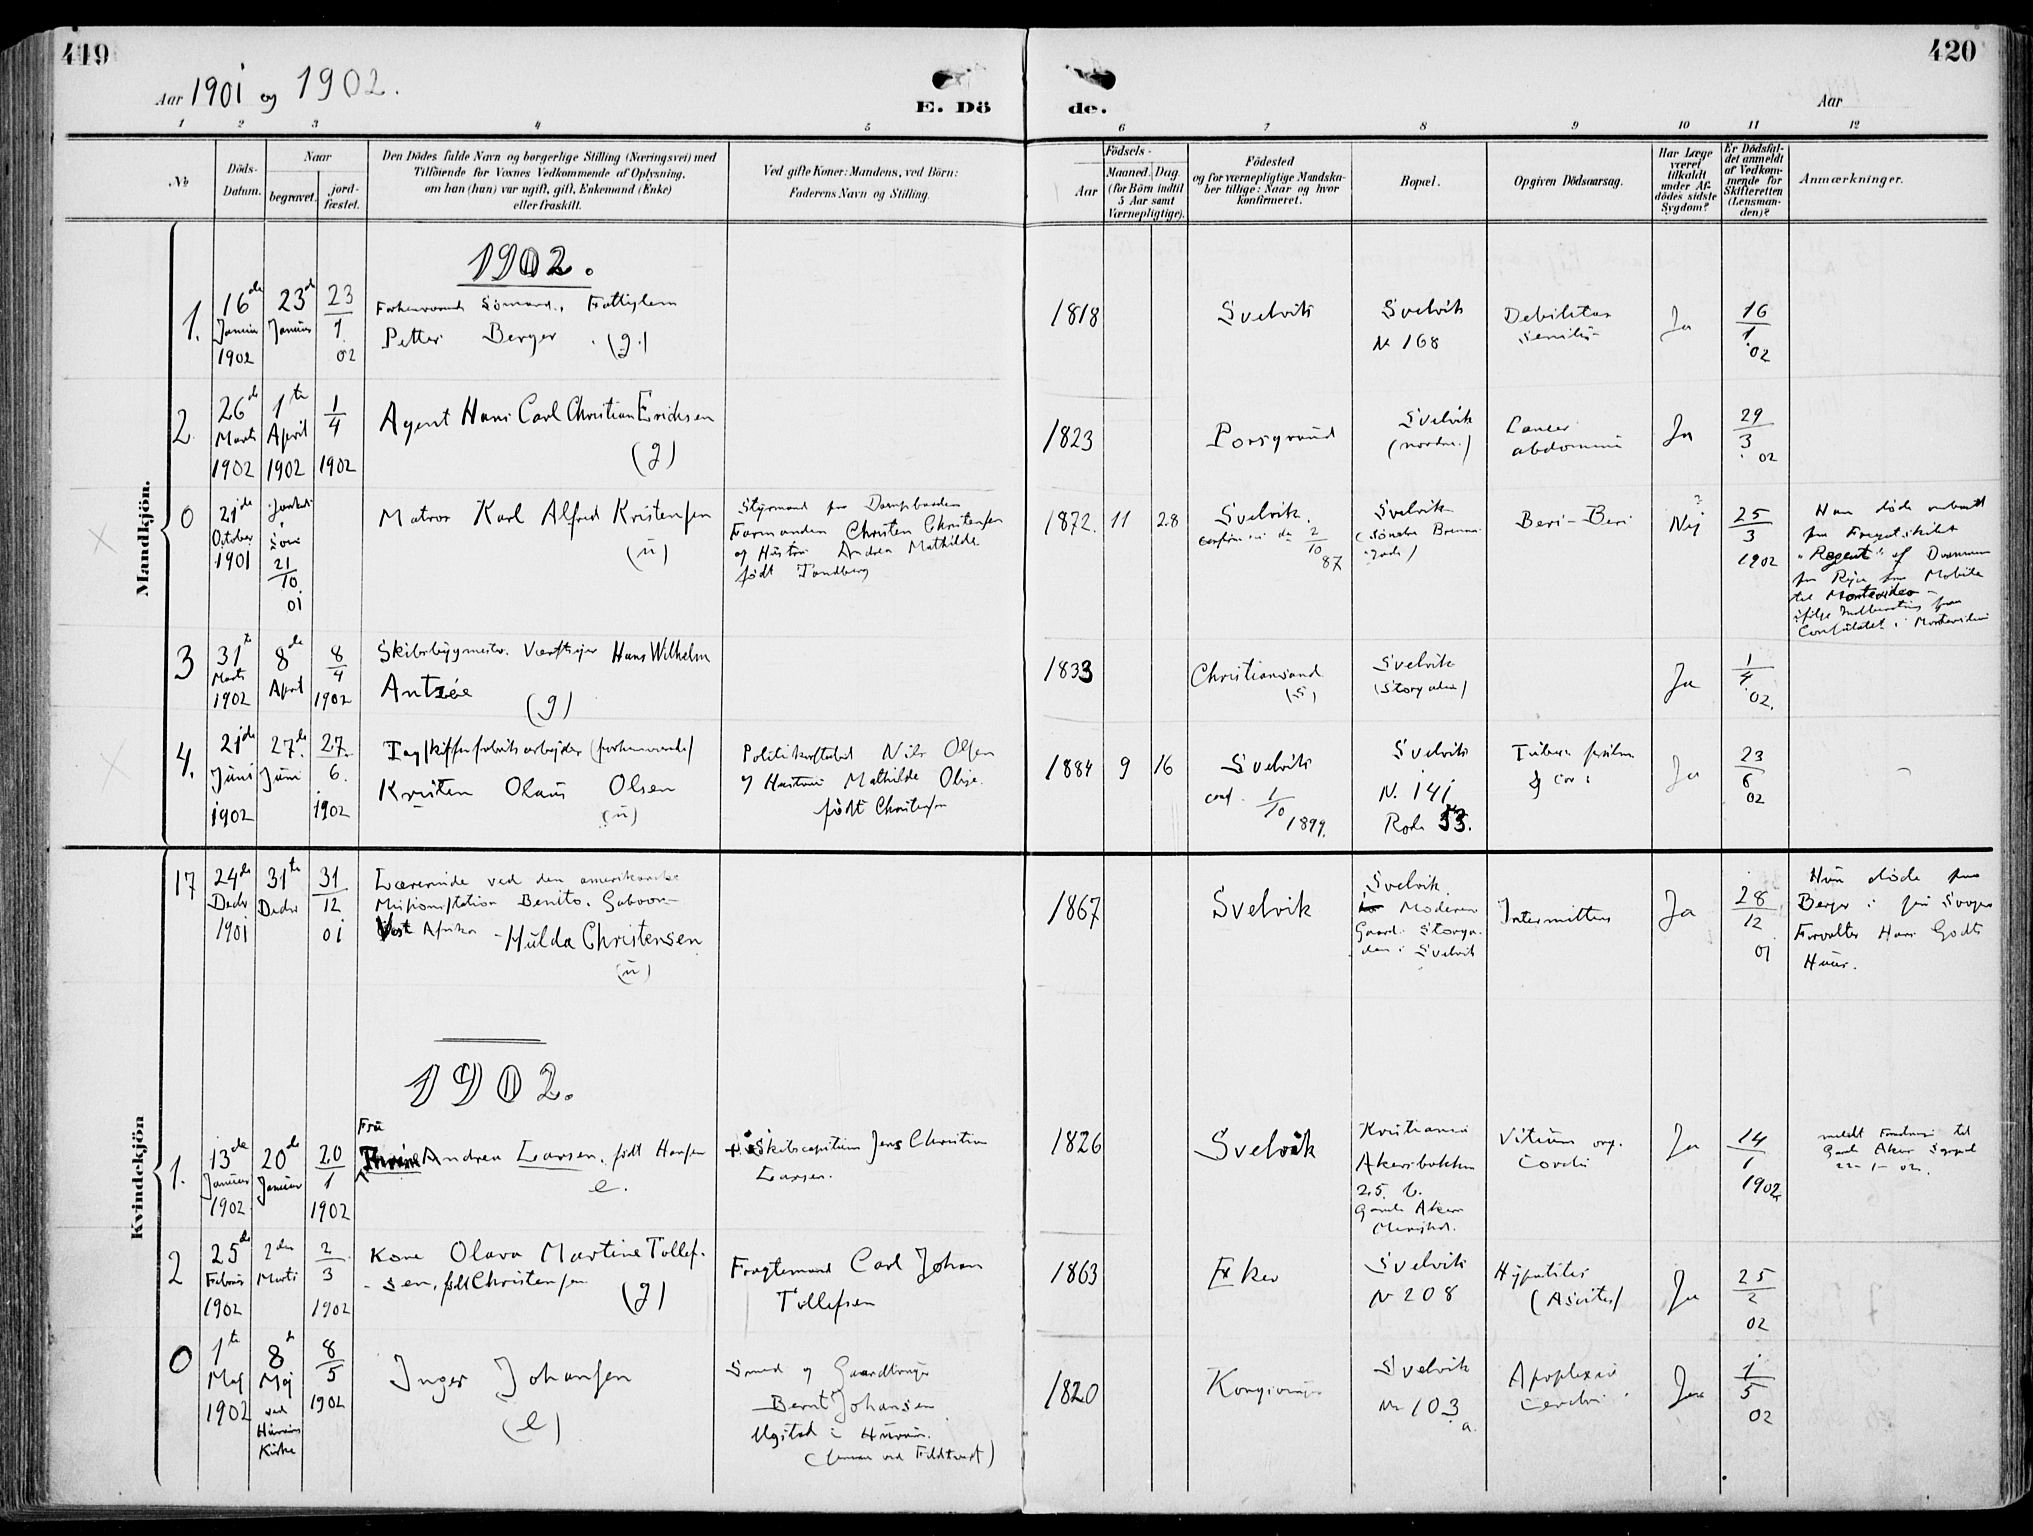 419
420
Aar 1901 og 1902.
E. Dö
de.
Aar
1 2 3 4 5
6 7 8 9 10 11 12
No
Döds-
Datum.
Naar
begravet.
jord-
fæstet.
Den Dödes fulde Navn og borgerlige Stilling (Næringsvei) med
Tilföiende for Voxnes Vedkommende af Oplysning,
om han (hun) var ugift, gift, Enkemand (Enke)
eller fraskilt.
Ved gifte Koner: Mandens, ved Börn:
Faderens Navn og Stilling.
Födsels-
Aar
Maaned. Dag.
(for Börn indtil
5 Aar samt
Værnepligtige).
Födested
og for værnepligtige Mandska-
ber tillige: Naar og hvor
konfirmeret.
Bopæl.
Opgiven Dödsaarsag.
Har Læge
været
tilkaldt
under Af-
dödes sidste
Sygdom?
Er Dödsfal-
det anmeldt
af Vedkom-
mende for
Skifteretten
(Lensman-
den)?
Anmærkninger.
Mandkjön.
1902.
1.
16de
Januar
1902
23de
Januar
23
1
02
Forhenværende Sömand, Fattiglem
Petter Berger (g.)
1818
Svelvik
Svelvik
No 168
Debilitas
senilis
Ja
16
1
02
2.
26de
Marts
1902
1te
April
1902
1
4
1902
Agent Hans Carl Christian Ericksen
(g)
1823
Porsgrund
Svelvik
(nordre)
Cancer
abdominis
Ja
29
3
02
0
21de
October
1901
21
10
01
Matros Karl Alfred Kristensen
(u)
Styrmand
Formanden Christen Christensen
og Hustru Andrea Mathilde
födt Tandberg
1872. 11 28
Svelvik.
2
10
87
Svelvik
(Söndre
Beri-Beri
Nej
25
3
1902
Han döde ombord
paa Fregatskibet
"Regent" af Drammen
paa Rejse fra Mobile
til Montevideo -
ifölge Indberetning fra
Consulatet i Montevideo
3
31te
Marts
1902
8de
April
8
4
1902
Skibsbygmester. Værftsejer Hans Wilhelm
Antzée
(g)
1833
Christianssand
(S)
Svelvik
(Storgaden)
Ja
1
4
02.
4.
21de
Juni
1902
27de
Juni
27
6.
1902
Tagskifferfabriksarbejder (forhenværende)
Kristen Olaus Olsen
(u)
Politikonstabel Nils Olsen
og Hustru Mathilde Olsen
födt Christensen
1884 9 16
Svelvik
conf. 1
10
1899.
Svelvik
No. 141
Rode 53.
Ja
23
6
02
Kvindekjön
17
24de
Decbr
1901
31te
Decbr
31
12
01
Lærerinde ved den amerikanske
Missionsstation Benito. Gaboon-
Vest Afrika - Hulda Christensen
(u)
1867
Svelvik
Svelvik
Moderens
Gaard. Storga-
den i Svelvik
Intermittens
Ja
28
12
01
Hun döde paa
Berger i
Forvalter Hans Godts
Huus.
1902.
1.
13de
Januar
1902
20de
Januar
20
1
1902
Fru
Andrea Larsen. födt Hansen
e.
Skibscapitain Jens Christian
Larsen.
1826
Svelvik
Kristiania
Akersbakken
25. b.
Gamle Aker
Menighed.
Vitium org.
cordis
Ja
14
1
1902
Gamle Aker Sognepr
22-1-02.
2
25de
Februar
1902
2den
Marts
2
3
1902
Kone Olava Martine Tollef-
sen, födt Christensen
(g)
Fragtemand Carl Johan
Tollefsen
1863
Eker
Svelvik
No 208
Hepatitis
(Ascites)
Ja
25
2
02
0
1te
Maj
1902
8de
Maj
ved
Hurums
Kirke
8
5
1902
Inger Johansen
(e)
Smed og Gaardbruger
Bernt Johansen
i Hurum.
1820
Svelvik
No 103
a.
Apoplexia
cerebri
Ja
1
5
02